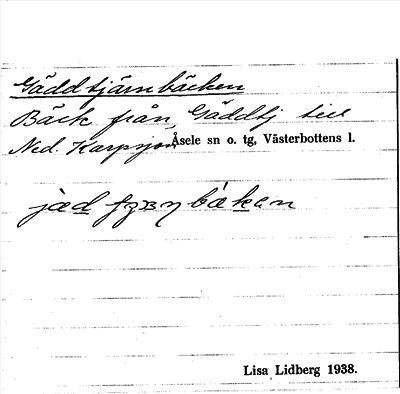 Gäddtjärnbäcken
Bäck från Gäddtj till
Ned. Karpsjön Åsele sn o. tg, Västerbottens l.
Lisa Lidberg 1938.